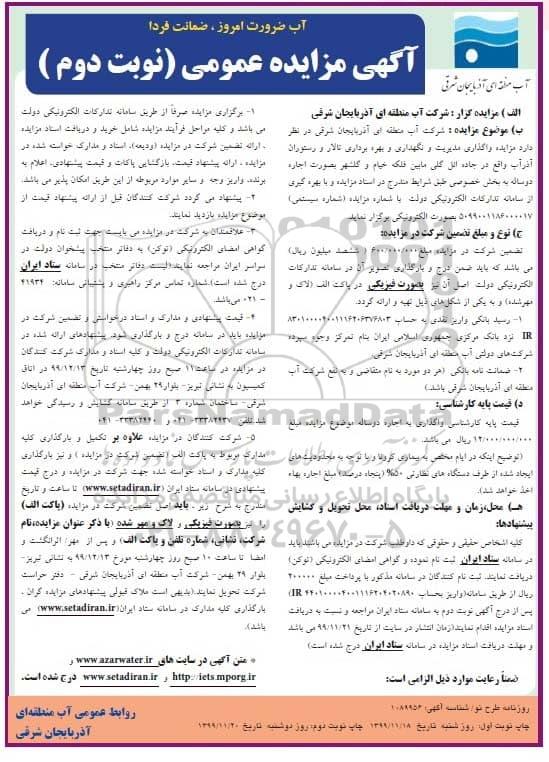 آب ضرورت امروز ، ضمانت فردا
آگهی مزایده عمومی (نوبت دوم )
آب منطقه ای آذربایجان شرقی
الف ) مزایده گزار : شرکت آب منطقه ای آذربایجان شرقی
ب) موضوع مزایده : شرکت آب منطقه ای آذربایجان شرقی در نظر
دارد مزایده واگذاری مدیریت و نگهداری و بهره برداری تالار و رستوران
آذرآب واقع در جاده ائل گلی مابین فلکه خیام و گلشهر بصورت اجاره
دوساله به بخش خصوصی طبق شرایط مندرج در اسناد مزایده و با بهره گیری
از سامانه تدارکات الکترونیکی دولت با شماره مزایده (شماره سیستمی)
۵۰۹۹۰۰۱۱۸۶۰۰۰۰۱۷ بصورت الکترونیکی برگزار نماید.
ج) نوع و مبلغ تضمین شرکت در مزایده:
تضمین شرکت در مزایده مبلغ ۶۰۰/۰۰۰/۰۰۰ ( ششصد میلیون ریال)
می باشد که باید ضمن درج و بارگذاری تصویر آن در سامانه تدارکات
الکترونیکی دولت اصل آن نیز بصورت فیزیکی در پاکت الف (لاک و
مهرشده) و به یکی از شکل‌های ذیل تهیه و ارائه گردد.
۱- رسید بانکی واریز نقدی به حساب ۸۳۰۱۰۰۰۰۴۰۰۱۱۱۶۲۰۶۳۷۶۸۰۳
IR نزد بانک مرکزی جمهوری اسلامی ایران بنام تمرکز وجوه سپرده
شرکت‌های دولتی آب منطقه ای آذربایجان شرقی.
۲- ضمانت نامه بانکی (هر دو مورد به نام متقاضی و به نفع شرکت آب
منطقه ای آذربایجان شرقی باشد.)
د) قیمت پایه کارشناسی:
قیمت پایه کارشناسی واگذاری به اجاره دوساله موضوع مزایده مبلغ
۱۲/۰۰۰/۰۰۰/۰۰۰ ریال می باشد.
(توضیح اینکه در ایام مختص به بیماری کرونا و با توجه به محدودیت‌های
ایجاد شده از طرف دستگاه های نظارتی ۵۰% (پنجاه درصد) مبلغ اجاره بهاء
اخذ خواهد شد).
هـ) محل،زمان و مهلت دریافت اسناد، محل تحویل و گشایش
پیشنهادها:
کلیه اشخاص حقیقی و حقوقی که داوطلب شرکت در مزایده می باشند باید
در سامانه ستاد ایران ثبت نام نموده و گواهی امضای الکترونیکی (توکن)
دریافت نمایند. ثبت نام کنندگان در سامانه مذکور با پرداخت مبلغ ۲۰۰۰۰۰
ریال از طریق سامانه(واریز بحساب ۴۴۰۱۰۰۰۰۴۰۰۱۱۱۶۲۰۴۰۲۰۸۹۰ IR)
پس از درج آگهی نوبت دوم به سامانه ستاد ایران مراجعه و نسبت به دریافت
اسناد مزایده اقدام نمایند(زمان انتشار در سایت از تاریخ ۹۹/۱۱/۲۱ می باشد
و مهلت دریافت اسناد مزایده در سامانه ستاد ایران درج شده است)
ضمناً رعایت موارد ذیل الزامی است:
۱- برگزاری مزایده صرفاً از طریق سامانه تدارکات الکترونیکی دولت
می باشد و کلیه مراحل فرآیند مزایده شامل خرید و دریافت اسناد مزایده
، ارائه تضمین شرکت در مزایده (ودیعه)، اسناد و مدارک خواسته شده در
مزایده ، ارائه پیشنهاد قیمت، بازگشایی پاکات و قیمت پیشنهادی، اعلام به
برنده، واریز وجه و سایر موارد مربوطه از این طریق امکان پذیر می باشد.
۲- پیشنهاد می گردد شرکت کنندگان قبل از ارائه پیشنهاد قیمت از
موضوع مزایده بازدید نمایند.
۳- علاقمندان به شرکت در مزایده می بایست جهت ثبت نام و دریافت
گواهی امضای الکترونیکی (توکن) به دفاتر منتخب پیشخوان دولت در
سراسر ایران مراجعه نمایند.(لیست دفاتر منتخب در سامانه ستاد ایران
درج شده است).شماره تماس مرکز راهبری و پشتیبانی سامانه: ۴۱۹۳۴
– ۰۲۱ می‌باشد.
۴- قیمت پیشنهادی و مدارک و اسناد درخواستی و تضمین شرکت در
مزایده باید در سامانه درج و بارگذاری شود. پیشنهادهای ارائه شده در
سامانه تدارکات الکترونیکی دولت و کلیه اسناد و مدارک شرکت کنندگان
در مزایده در ساعت۱۱ صبح روز چهارشنبه تاریخ ۹۹/۱۲/۱۳ در اتاق
کمیسیون به نشانی تبریز- بلوار۲۹ بهمن- شرکت آب منطقه ای آذربایجان
شرقی- ساختمان شماره ۳ از طریق سامانه گشایش و رسیدگی خواهد
شد.تلفن ۳۳۳۸۲۴۳۷-۰۴۱ و ۳۳۳۸۲۴۴۰-۰۴۱
۵- شرکت کنندگان در مزایده علاوه بر تکمیل و بارگذاری کلیه
مدارک مربوط به پاکت الف (تضمین شرکت در مزایده ) و نیز بارگذاری
کلیه مدارک و اسناد خواسته شده جهت شرکت در مزایده و درج قیمت
پیشنهادی در سامانه ستاد ایران (www.setadiran.ir) تا ساعت و تاریخ
مندرج به شرح زیر ، باید اصل تضمین شرکت در مزایده (پاکت الف)
را نیز بصورت فیزیکی و لاک و مهر شده (با ذکر عنوان مزایده،نام
شرکت، نشانی، شماره تلفن و پاکت الف) و پس از مهر/ اثرانگشت و
امضا تا ساعت ۱۰ صبح روز چهارشنبه مورخ ۹۹/۱۲/۱۳ به نشانی تبریز-
بلوار ۲۹ بهمن- شرکت آب منطقه ای آذربایجان شرقی - دفتر حراست
شرکت تحویل نمایند.(بدیهی است ملاک قبولی پیشنهادهای مزایده گران ،
بارگذاری کلیه مدارک در سامانه ستاد ایران(www.setadiran.ir) می
باشد).
* متن آگهی در سایت های www.azarwater.ir و
http://iets.mporg.ir و www.setadiran.ir درج شده است.
روزنامه طرح نو/ شناسه آگهی: ۱۰۸۹۹۵۶
چاپ نوبت اول: روز شنبه تاریخ ۱۳۹۹/۱۱/۱۸ چاپ نوبت دوم: روز دوشنبه تاریخ ۱۳۹۹/۱۱/۲۰
روابط عمومی آب منطقه‌ای
آذربایجان شرقی
ParsNamadData
پایگاه اطلاع رسانی مناقصه و مزایده